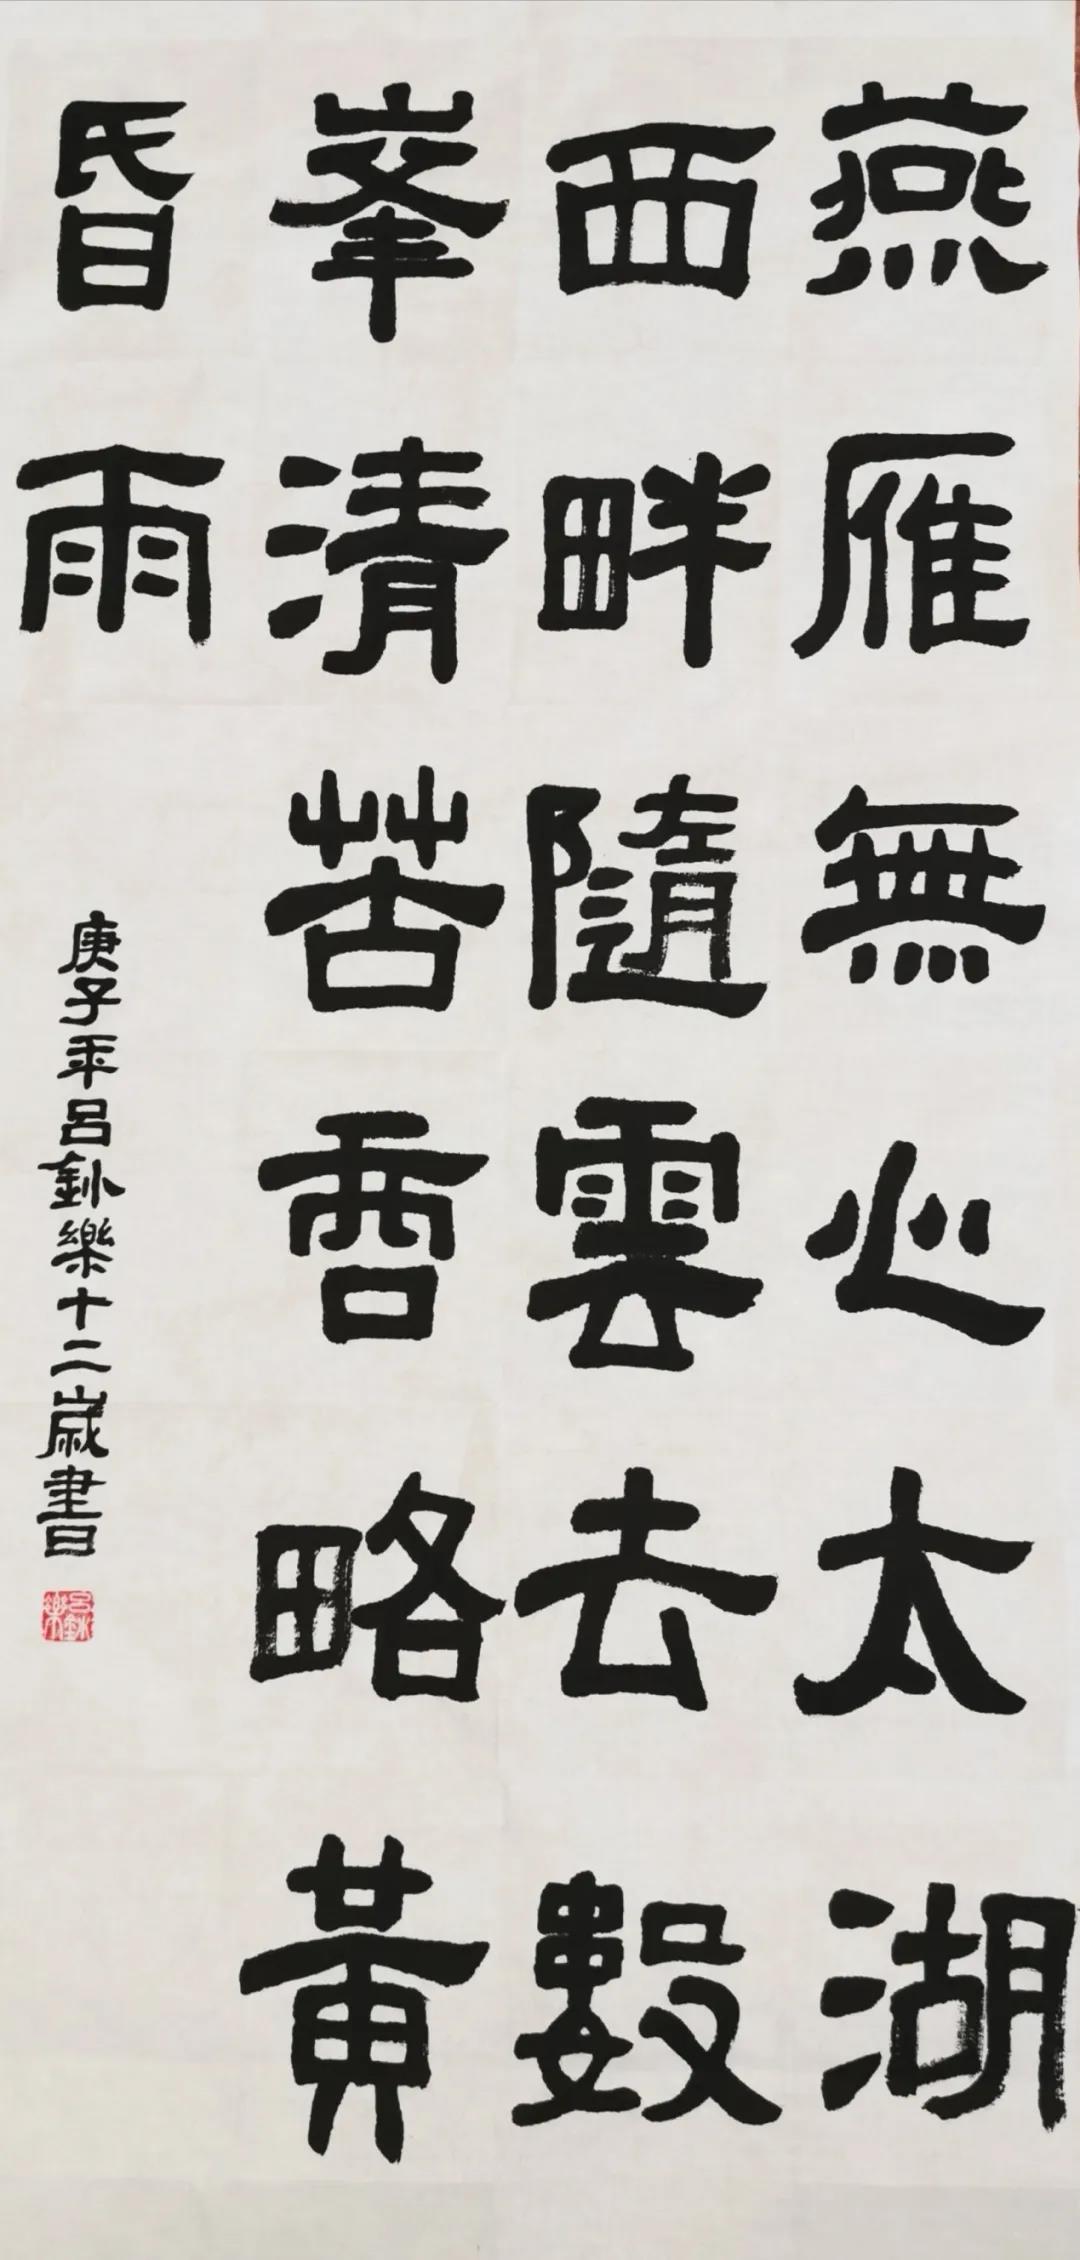 燕雁無心太湖
西畔隨雲去數
峯清苦商略黃
昏雨
庚子年呂樂十二歲書